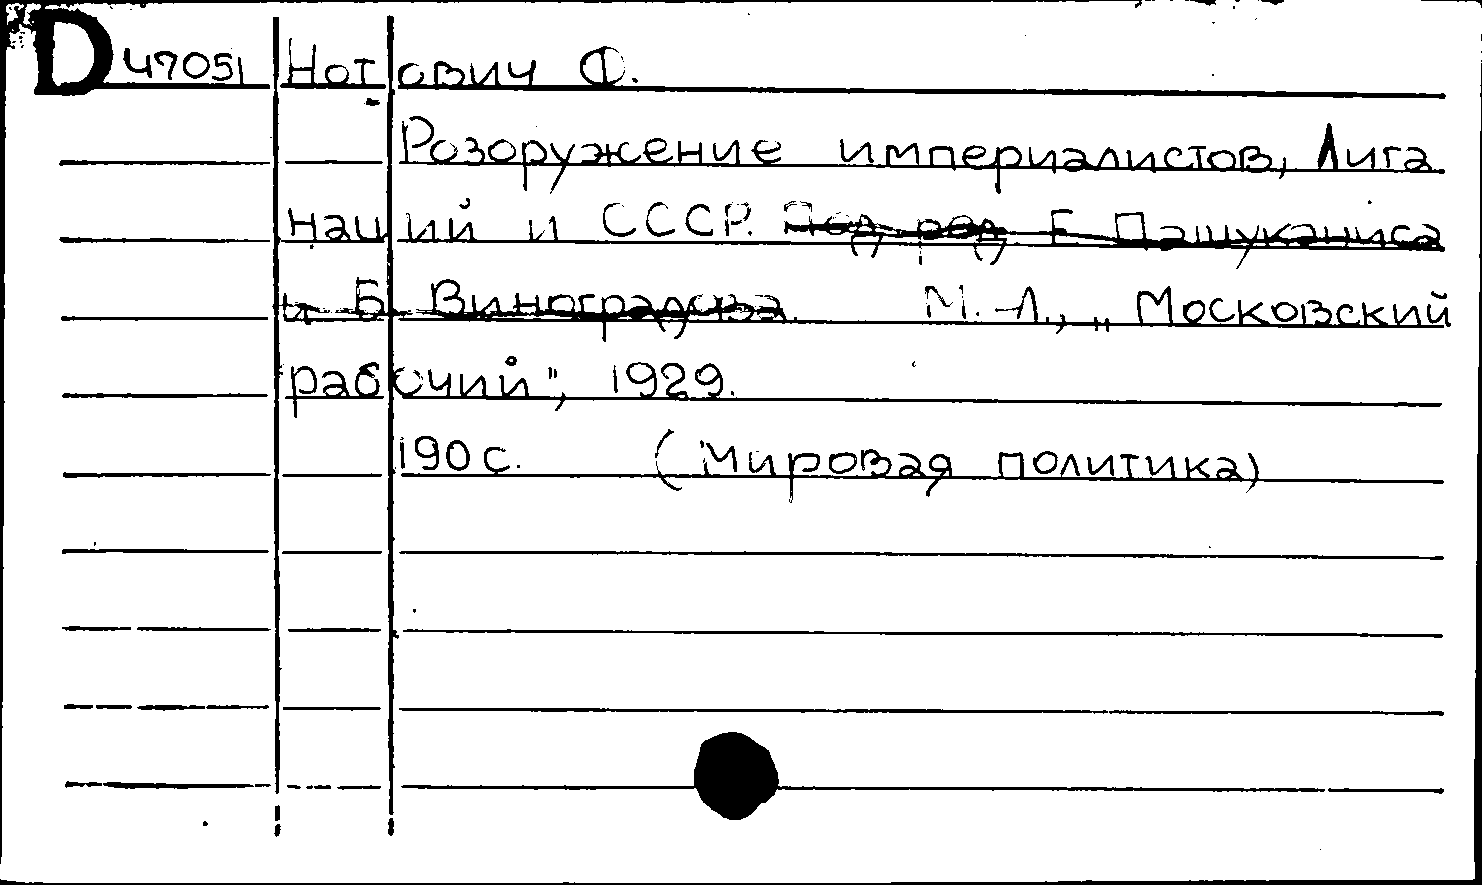 D 47051 Нотович Ф.
Розоружение империалистов, Лига
наций и СССР. Под ред. Е. Пашуканиса
и Б. Виноградова. М.-Л., „Московский
рабочий", 1929.
190 с. (Мировая политика)